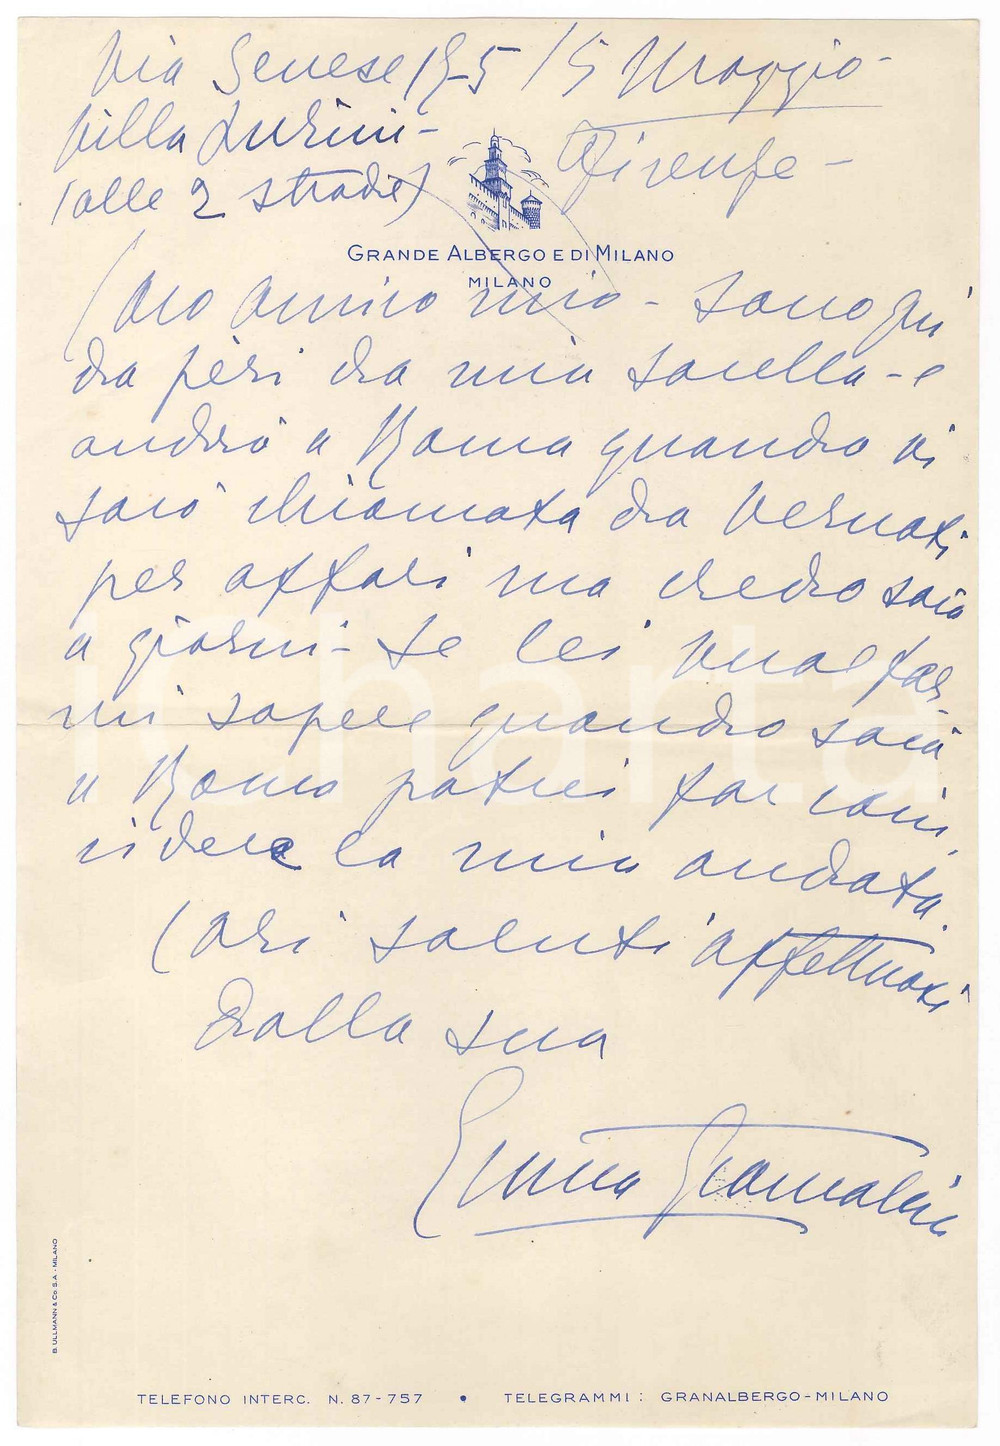 Via Senese 195 / 5 Maggio -
Villa Lurini -
Firenze -
(alle 2 strade)
GRANDE ALBERGO E DI MILANO
MILANO
Caro amico mio - sono qui
da ieri da mia sorella - e
andrò a Roma quando vi
sarò chiamata da Vernati
per affari ma credo sarà
a giorni - Se lei vuol far-
mi sapere quando sarà
a Roma potrei far coin
cidere la mia andata.
Cari saluti affettuosi
dalla sua
Emma Gramatica
B. ULLMANN & Co. S.A. - MILANO
TELEFONO INTERC. N. 87-757 • TELEGRAMMI: GRANALBERGO-MILANO
icharta